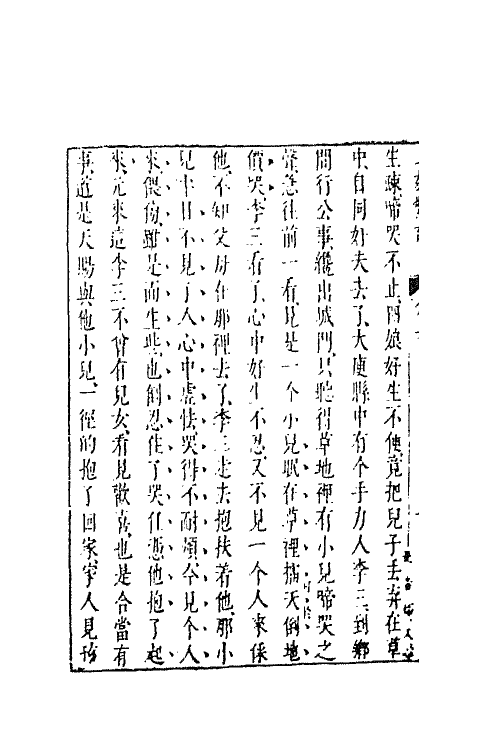 生疎啼哭不止那娘好生不便竟把兒子丢弃在草
中自同奸夫去了大庾縣中有个手力人李三到鄉
間行公事纔出城門只聽得草地裡有小兒啼哭之
聲急往前一看見是一个小兒眠在草裡擂天倒地
價哭李三看了心中好生不忍又不見一个人來保
他不知父母在那裡去了李三走去抱扶着他那小
兒半日不見了人心中虛怯哭得不耐煩今見个人
來偎傍雖是面生些也倒忍住了哭任憑他抱了起
來元來這李三不曾有兒女看見歡喜也是合當有
事道是天賜與他小兒一徑的抱了回家家人見孩